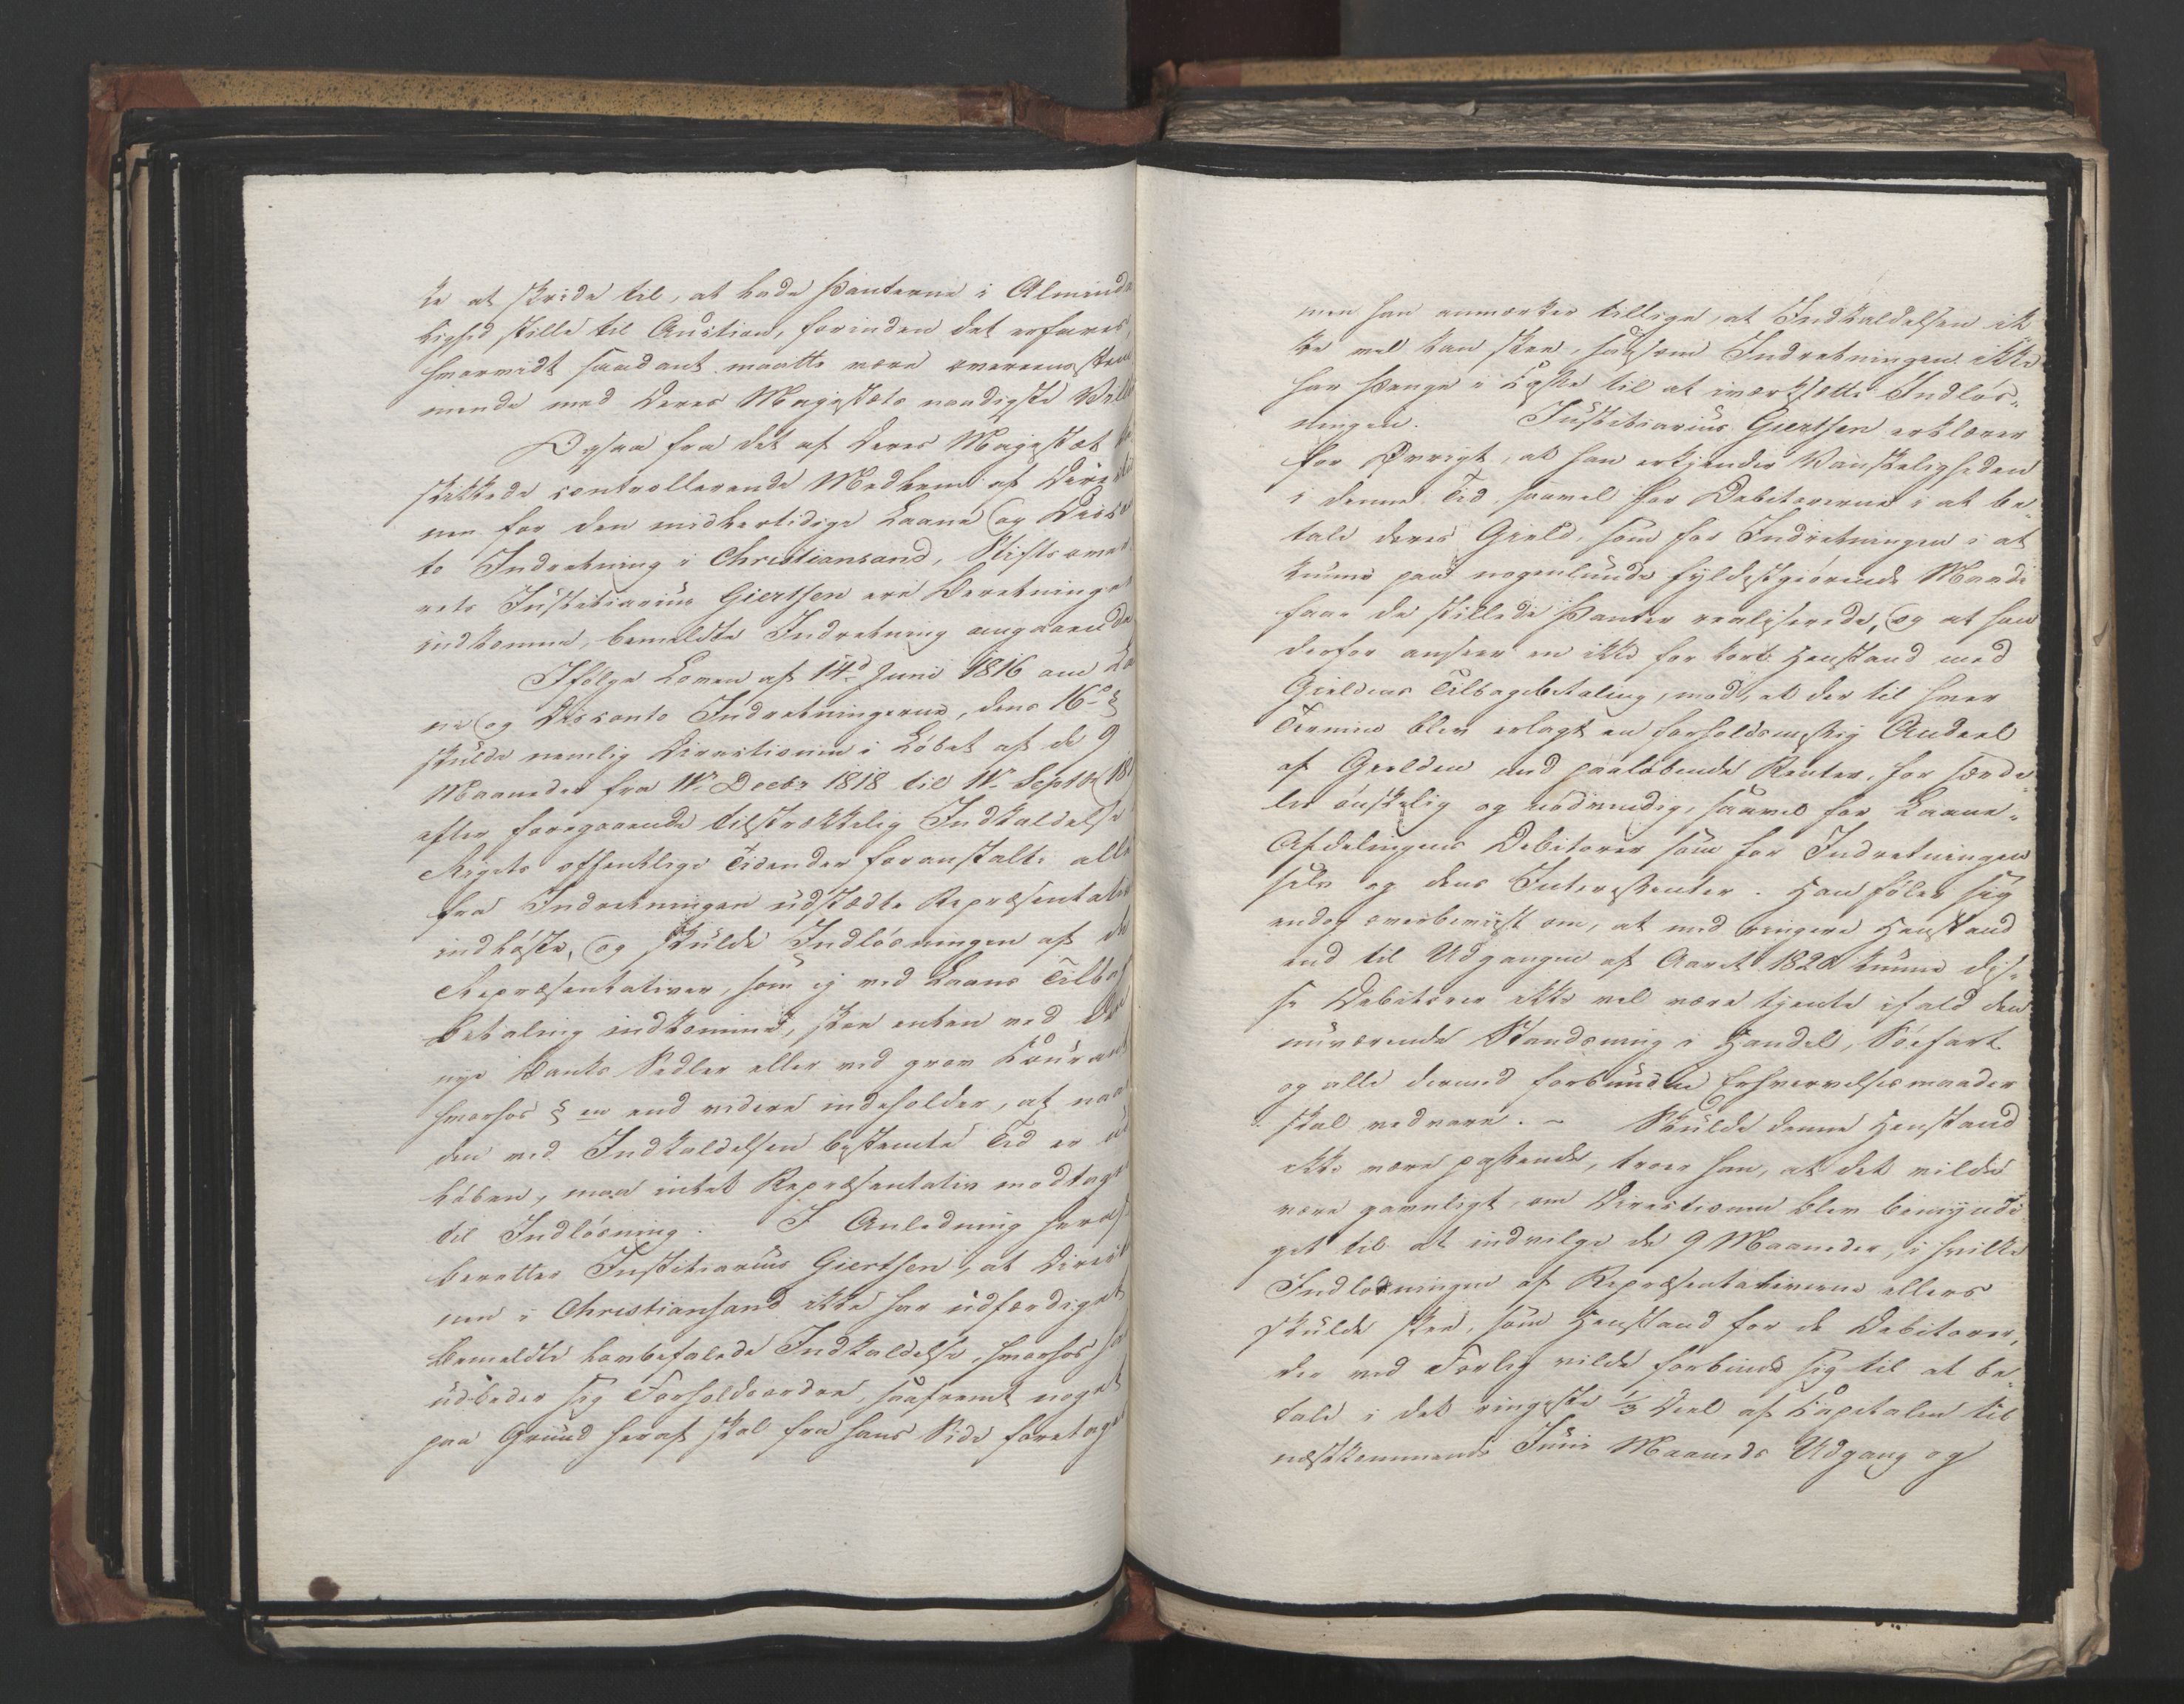 ke at skride til, at lade Panterne i Alminde
lighed stille til Auction, forinden det erfares,
hvorvidt saadant maatte være overeensstem
mende med Deres Majestæts naadigste Villie
Ogsaa fra det af Deres Majestæt be
skikkede controllerende Medlem af Directio
nen for den midlertidige Laane og Disco
to Indretning i Christiansand, Stiftsover
rets Justitiarius Giertsen ere Beretninger
indkomne, bemeldte Indretning angaaende
Ifölge Loven af 14d Juni 1816 om Laa
ne og Disconto Indretningerne, dens 16de §
skulde nemlig Directionen i Löbet af de 9
Maaneder fra 1ste Decbr 1818 til 1ste Septbr 181
efter foregaaende tilstrækkelig Indkaldelse
Rigets offentlige Tidender foranstalte alle
fra Indretningen udstædte Repræsentativer
indlöste, og skulde Indlösningen af de
Repræsentativer, som ej ved Laans Tilbage
betaling indkomme, skee enten med den
nye Banks Sedler eller med grov Courant
hvorhos § en end videre indeholder, at naar
den ved Indkaldelsen bestemte Tid er ud
löben, maa intet Repræsentativ modtages
til Indlösning. I Anledning heraf
beretter Justitiarius Giertsen, at Directio
nen i Christiansand ikke har udfærdiget
bemeldte lovbefalede Indkaldelse, hvorhos han
udbeder sig Forholdsordre, saafremt noget
paa Grund heraf skal fra hans Side foretages
men han anmærker tillige, at Indkaldelsen ik
ke vel kan skee, saasom Indretningen ikke
har Penge i Behold til at iværksætte Indlös-
ningen. Justitiarius Giertsen erklærer
for Övrigt, at han erkjender Vanskeligheden
i denne Tid, saavel for Debitorerne i at be-
tale deres Gjeld, som for Indretningen i at
kunne paa nogenlunde fyldestgiörende Maade
faae de stillede Panter realiserede, og at han
derfor anseer en ikke for kort Henstand med
Gieldens Tilbagebetaling, mod, at der til hver
Termin blev erlagt en forholdsmæssig Andeel
af Gielden med paalöbende Renter, for særde-
les önskelig og nödvendig, saavel for Laane-
Afdelingens Debitorer som for Indretningen
selv og dens Interessenter. Han föler sig
endog overbeviist om, at med ringere Henstand
end til Udgangen af Aaret 1820 kunne dis-
se Debitorer ikke vel være tjente ifald den
nuværende Standsning i Handel, Söefart
og alle dermed forbundne Erhvervelsesmaader
skal vedvare. - Skulde denne Henstand
ikke være passende, troer han, at det vilde
være gavnligt, om Directionen blev bemyndi-
get til at indvilge de 9 Maaneder, i hvilke
Indlösningen af Repræsentativerne ellers
skulde skee, som Henstand for de Debitorer,
der ved Forlig vilde forbinde sig til at be-
tale i det ringeste 1/3 Deel af Capitalen til
næstkommende Juni Maaneds Udgang og